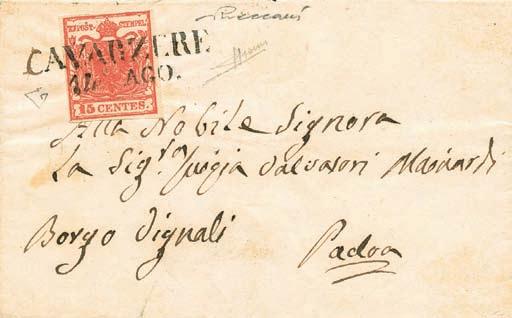 K.K.POST-STEMPEL
15 CENTES.
CAVARZERE
14 AGO.
Alla Nobile Signora
La Sig.ra Luigia Salvatori Mainardi
Borgo Vignali
Padoa